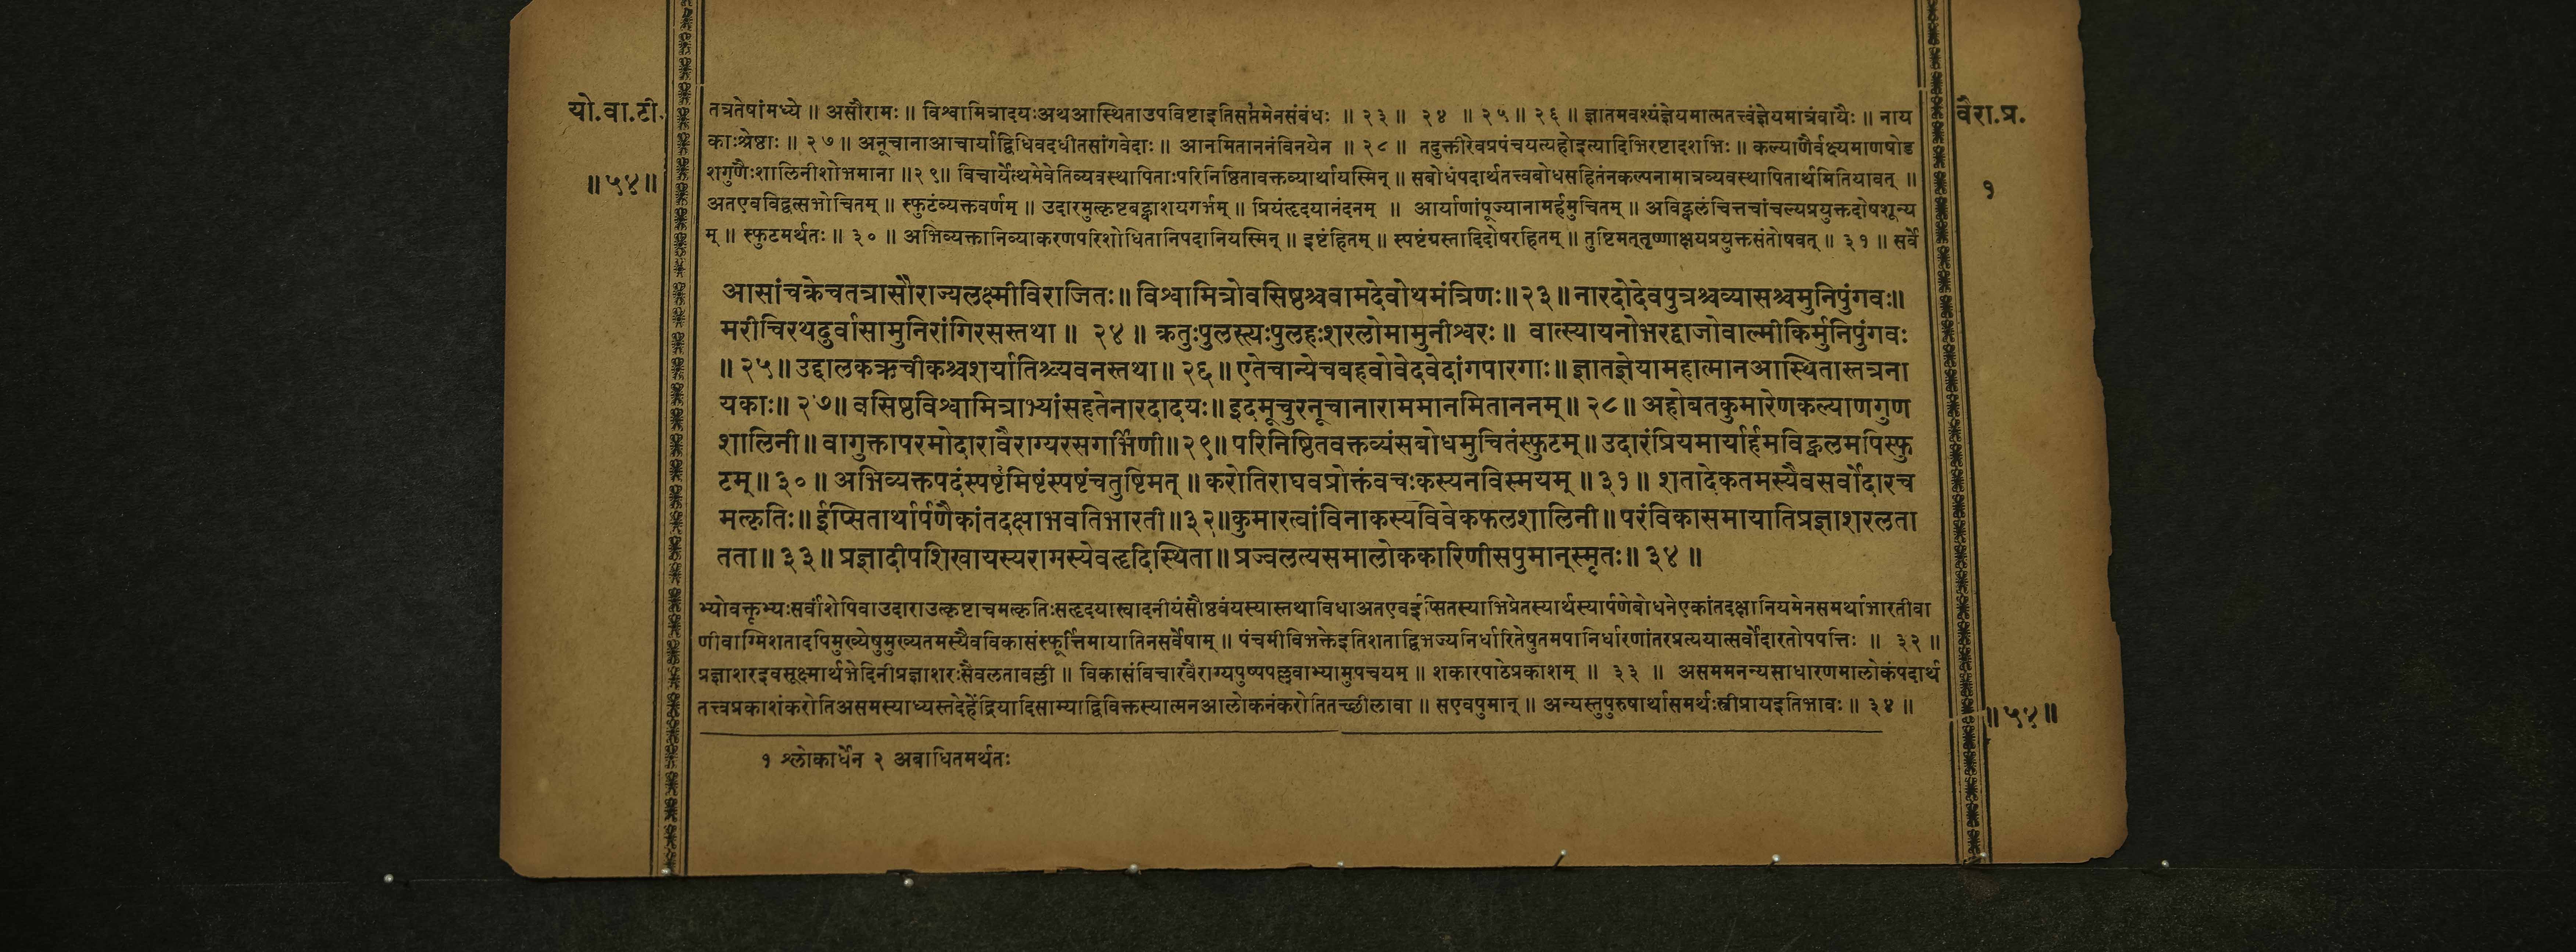 यो.वा.टी.
॥५४॥
तत्रतेषांमध्ये ॥ असौरामः ॥ विश्वामित्रादयःअथआस्थिताउपविष्टाइतिसप्तमेनसंबंधः ॥ २३ ॥ २४ ॥ २५ ॥ २६ ॥ ज्ञातमवश्यंज्ञेयमात्मतत्त्वंज्ञेयमात्रंवायैः ॥ नाय
काःश्रेष्ठाः ॥ २७ ॥ अनूचानाआचार्याद्विधिवदधीतसांगवेदाः ॥ आनमिताननंविनयेन ॥ २८ ॥ तदुक्तीरेवप्रपंचयत्यहोइत्यादिभिरष्टादशभिः ॥ कल्याणैर्वक्ष्यमाणषोड
शगुणैःशालिनीशोभमाना ॥२९॥ विचार्येत्थमेवेतिव्यवस्थापिताःपरिनिष्ठितावक्तव्यार्थायस्मिन् ॥ सबोधंपदार्थतत्त्वबोधसहितंनकल्पनामात्रव्यवस्थापितार्थमितियावत् ॥
अतएवविद्वत्सभोचितम् ॥ स्फुटंव्यक्तवर्णम् ॥ उदारमुत्कृष्टबद्धाशयगर्भम् ॥ प्रियंहृदयानंदनम् ॥ आर्याणांपूज्यानामर्हमुचितम् ॥ अविह्वलंचित्तचांचल्यप्रयुक्तदोषशून्य
म् ॥ स्फुटमर्थतः ॥ ३० ॥ अभिव्यक्तानिव्याकरणपरिशोधितानिपदानियस्मिन् ॥ इष्टंहितम् ॥ स्पष्टंग्रस्तादिदोषरहितम् ॥ तुष्टिमत्तृष्णाक्षयप्रयुक्तसंतोषवत् ॥ ३१ ॥ सर्वे
आसांचक्रेचतत्रासौराज्यलक्ष्मीविराजितः॥ विश्वामित्रोवसिष्ठश्चवामदेवोथमंत्रिणः॥२३॥ नारदोदेवपुत्रश्चव्यासश्चमुनिपुंगवः॥
मरीचिरथदुर्वासामुनिरांगिरसस्तथा ॥ २४ ॥ क्रतुःपुलस्त्यःपुलहःशरलोमामुनीश्वरः ॥ वात्स्यायनोभरद्वाजोवाल्मीकिर्मुनिपुंगवः
॥ २५॥ उद्दालकऋचीकश्चशर्यातिश्च्यवनस्तथा ॥ २६॥ एतेचान्येचबहवोवेदवेदांगपारगाः॥ ज्ञातज्ञेयामहात्मानआस्थितास्तत्रना
यकाः॥ २७॥ वसिष्ठविश्वामित्राभ्यांसहतेनारदादयः॥ इदमूचुरनूचानाराममानमिताननम्॥ २८॥ अहोबतकुमारेणकल्याणगुण
शालिनी॥ वागुक्तापरमोदारावैराग्यरसगर्भिणी॥२९॥ परिनिष्ठितवक्तव्यंसबोधमुचितंस्फुटम्॥ उदारंप्रियमार्यार्हमविह्वलमपिस्फु
टम्॥ ३०॥ अभिव्यक्तपदंस्पष्टमिष्टंस्पष्टंचतुष्टिमत् ॥ करोतिराघवप्रोक्तंवचःकस्यनविस्मयम् ॥ ३१॥ शतादेकतमस्यैवसर्वोदारच
मत्कृतिः॥ ईप्सितार्थार्पणैकांतदक्षाभवतिभारती॥३२॥कुमारत्वांविनाकस्यविवेकफलशालिनी॥ परंविकासमायातिप्रज्ञाशरलता
तता ॥ ३३॥ प्रज्ञादीपशिखायस्यरामस्येवहृदिस्थिता॥ प्रज्वलत्यसमालोककारिणीसपुमान्स्मृतः॥ ३४॥
भ्योवक्तृभ्यःसर्वांशेपिवाउदाराउत्कृष्टाचमत्कृतिःसहृदयास्वादनीयंसौष्ठवंयस्यास्तथाविधाअतएवईप्सितस्याभिप्रेतस्यार्थस्यार्पणेबोधनेएकांतदक्षानियमेनसमर्थाभारतीवा
णीवाग्मिशतादपिमुख्येषुमुख्यतमस्यैवविकासंस्फूर्त्तिमायातिनसर्वेषाम् ॥ पंचमीविभक्तेइतिशताद्विभज्यनिर्धारितेषुतमपानिर्धारणांतरप्रत्ययात्सर्वोदारतोपपत्तिः ॥ ३२ ॥
प्रज्ञाशरइवसूक्ष्मार्थभेदिनीप्रज्ञाशरःसैवलतावल्ली ॥ विकासंविचारवैराग्यपुष्पपल्लवाभ्यामुपचयम् ॥ शकारपाठेप्रकाशम् ॥ ३३ ॥ असममनन्यसाधारणमालोकंपदार्थ
तत्त्वप्रकाशंकरोतिअसमस्याध्यस्तदेहेंद्रियादिसाम्याद्विविक्तस्यात्मनआलोकनंकरोतितच्छीलावा ॥ सएवपुमान् ॥ अन्यस्तुपुरुषार्थासमर्थःस्त्रीप्रायइतिभावः ॥ ३४ ॥
१ श्लोकार्धेन २ अबाधितमर्थतः
वैरा.प्र.
१
॥५४॥